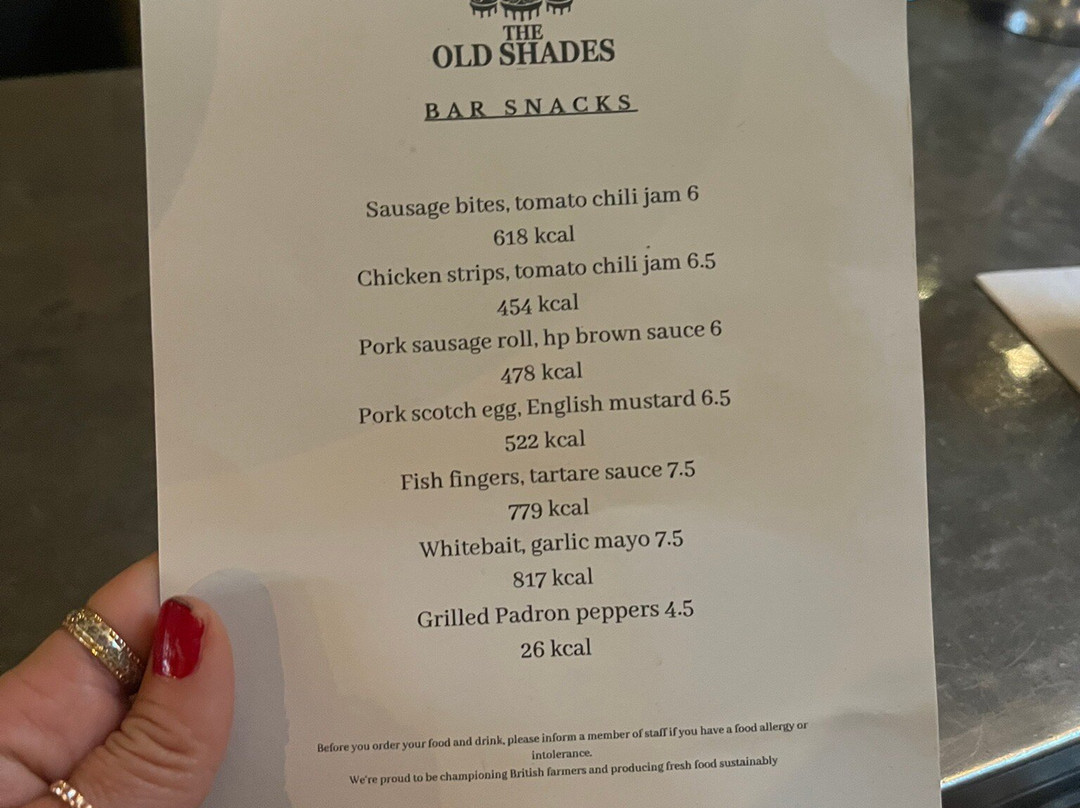 THE
OLD SHADES
BAR SNACKS
Sausage bites, tomato chili jam 6
618 kcal
Chicken strips, tomato chili jam 6.5
454 kcal
Pork sausage roll, hp brown sauce 6
478 kcal
Pork scotch egg, English mustard 6.5
522 kcal
Fish fingers, tartare sauce 7.5
779 kcal
Whitebait, garlic mayo 7.5
817 kcal
Grilled Padron peppers 4.5
26 kcal
Before you order your food and drink, please inform a member of staff if you have a food allergy or
intolerance.
We're proud to be championing British farmers and producing fresh food sustainably